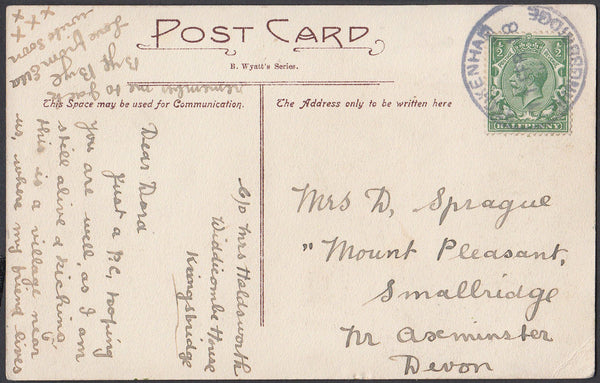 POST CARD.
R. Wyatt's Series.
This Space may be used for Communication.
The Address only to be written here
HALFPENNY
KENHAM
BRIDGE
c/o Mrs Holdsworth
Widdicombe House
Kingsbridge
Dear Dora
Just a P.C, hoping
you are well, as I am
still alive & kicking
this is a village near
us, where my friend lives
remember me to Jack
Bye Bye
Love from
write soon
x x x
Mrs D, Sprague
"Mount Pleasant,
Smallridge
nr Axminster
Devon